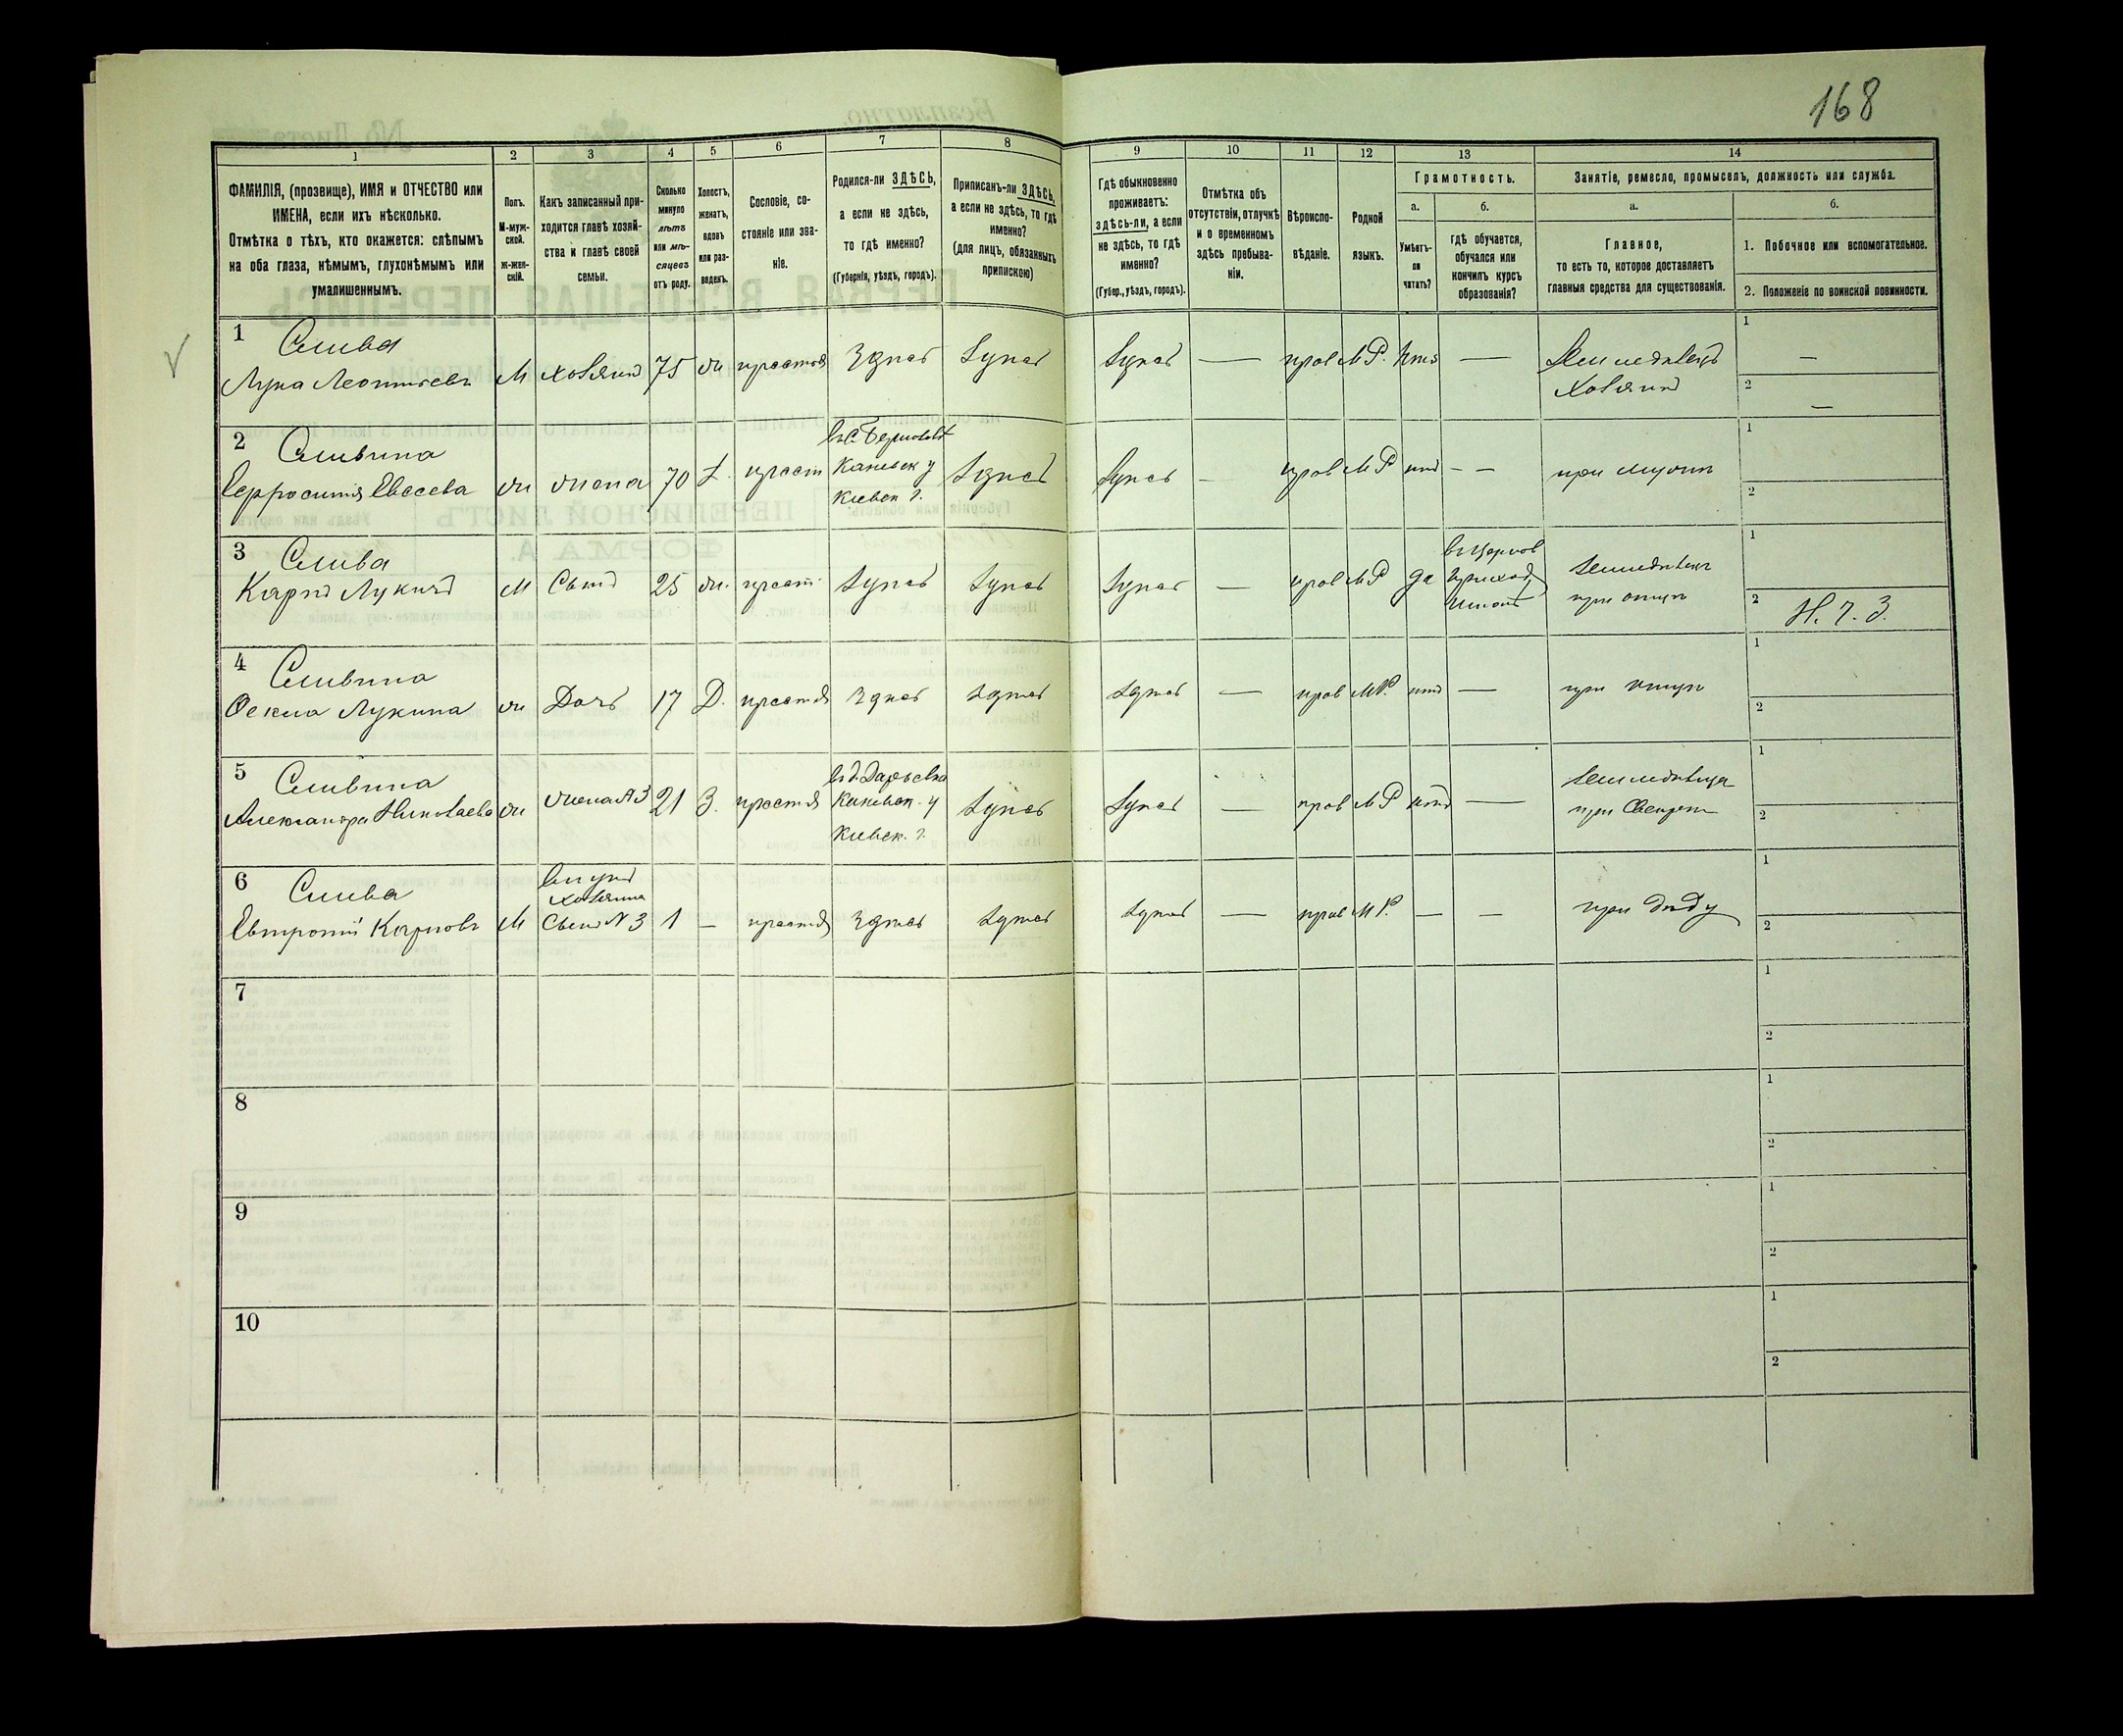 168
1
2
3
4
5
6
7
8
9
10
11
12
13
14
ФАМИЛІЯ, (прозвище), ИМЯ и ОТЧЕСТВО или
ИМЕНА, если ихъ нѣсколько.
Отмѣтка о тѣхъ, кто окажется: слѣпымъ
на оба глаза, нѣмымъ, глухонѣмымъ или
умалишеннымъ.
Полъ.
М-муж-
ской.
ж-жен-
скій.
Какъ записанный при-
ходится главѣ хозяй-
ства и главѣ своей
семьи.
Сколько
минуло
лѣтъ
или мѣ-
сяцевъ
отъ роду.
Холостъ,
женатъ,
вдовъ
или раз-
веденъ.
Сословіе, со-
стояніе или зва-
ніе.
Родился-ли ЗДѢСЬ,
а если не здѣсь,
то гдѣ именно?
(Губернія, уѣздъ, городъ).
Приписанъ-ли ЗДѢСЬ,
а если не здѣсь, то гдѣ
именно?
(для лицъ, обязанныхъ
припискою)
Гдѣ обыкновенно
проживаетъ:
здѣсь-ли, а если
не здѣсь, то гдѣ
именно?
(Губер., уѣздъ, городъ).
Отмѣтка объ
отсутствіи, отлучкѣ
и о временномъ
здѣсь пребыва-
ніи.
Вѣроиспо-
вѣданіе.
Родной
языкъ.
Грамотность.
а.
Умѣетъ-
ли
читать?
б.
гдѣ обучается,
обучался или
кончилъ курсъ
образованія?
Занятіе, ремесло, промыселъ, должность или служба.
а.
Главное,
то есть то, которое доставляетъ
главныя средства для существованія.
б.
1. Побочное или вспомогательное.
2. Положеніе по воинской повинности.
1
Слива
Лука Леонтьевъ М хозяинъ 75 ж крестья Здѣсь Здѣсь Здѣсь — прав М Р. нѣтъ — Земледѣлецъ
Хозяинъ
1 —
2 —
2
Сливина
Евфросинія Евсеева ж жена 70 З. крест
Каневск у
Киевск г.
Здѣсь Здѣсь — прав М Р нѣтъ — — при мужѣ
1
2
3
Слива
Карпъ Лукичъ М Сынъ 25 ж. крест Здѣсь Здѣсь Здѣсь — прав М Р да
въ Церков
приход
школѣ
земледѣлецъ
при отцѣ
1
2 Н. Ч. З.
4
Сливина
Лукина ж Дочь 17 Д. крестья Здѣсь Здѣсь Здѣсь — прав М Р. нѣтъ — при отцѣ
1
2
5
Сливина
Александра Николаева ж жена №3 21 З. крестья
въ д. Дарьевка
Каневск. у
Киевск. г.
Здѣсь Здѣсь — прав М Р нѣтъ —
земледѣлица
при Свекрѣ
1
2
6
Слива
Евтропій Карповъ М
внукъ
хозяина
Сынъ №3 1 — крестья Здѣсь Здѣсь Здѣсь — прав М Р. — — при дѣду
1
2
7
1
2
8
1
2
9
1
2
10
1
2